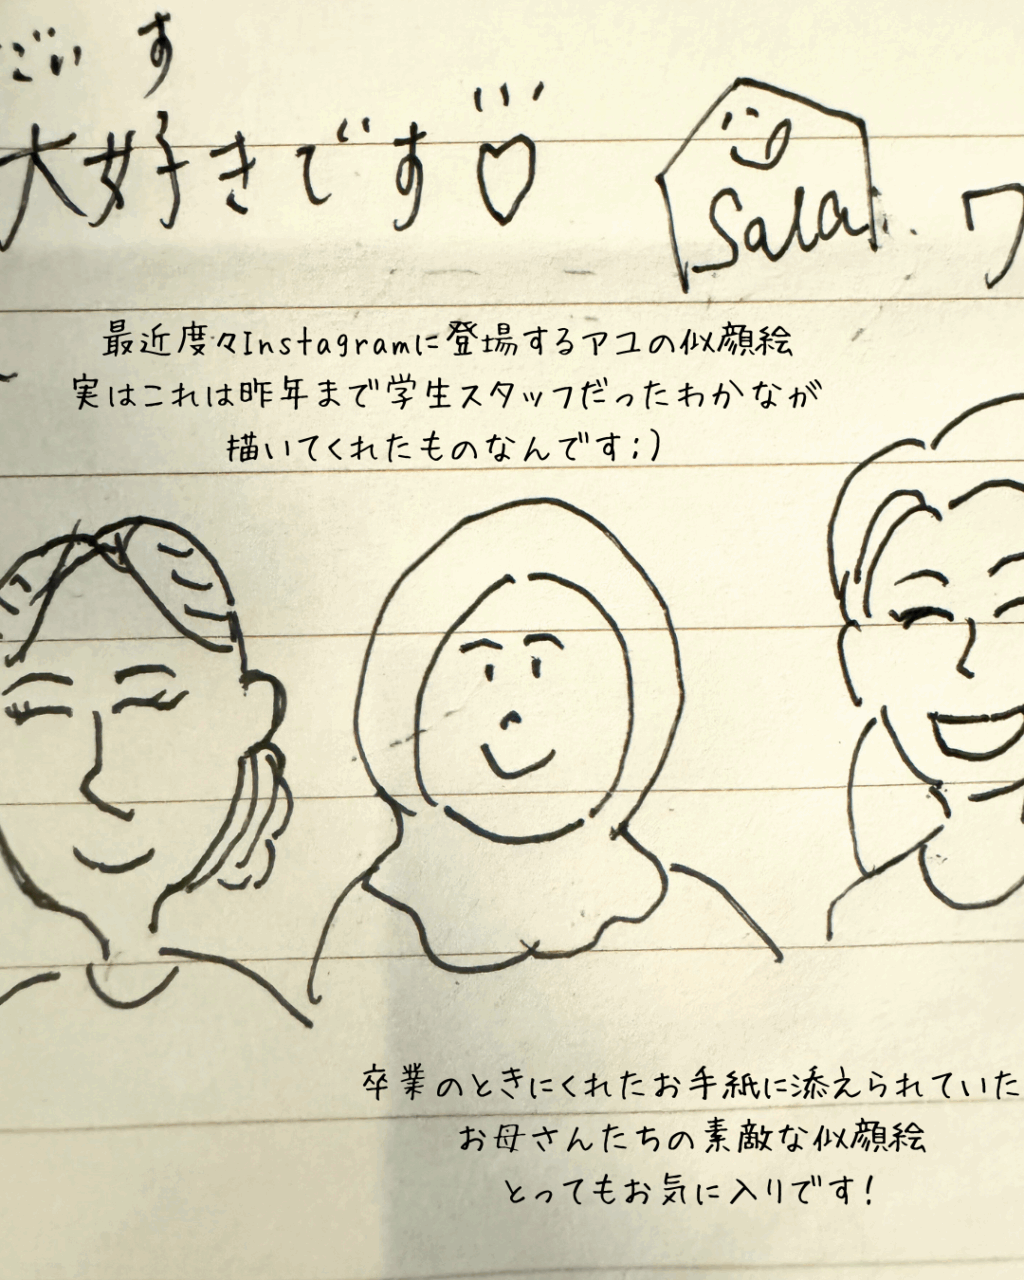 ごい す
大好きです♡
Sala
ワ
最近度々Instagramに登場するアユの似顔絵
実はこれは昨年まで学生スタッフだったわかなが
描いてくれたものなんです:)
卒業のときにくれたお手紙に添えられていた
お母さんたちの素敵な似顔絵
とってもお気に入りです!